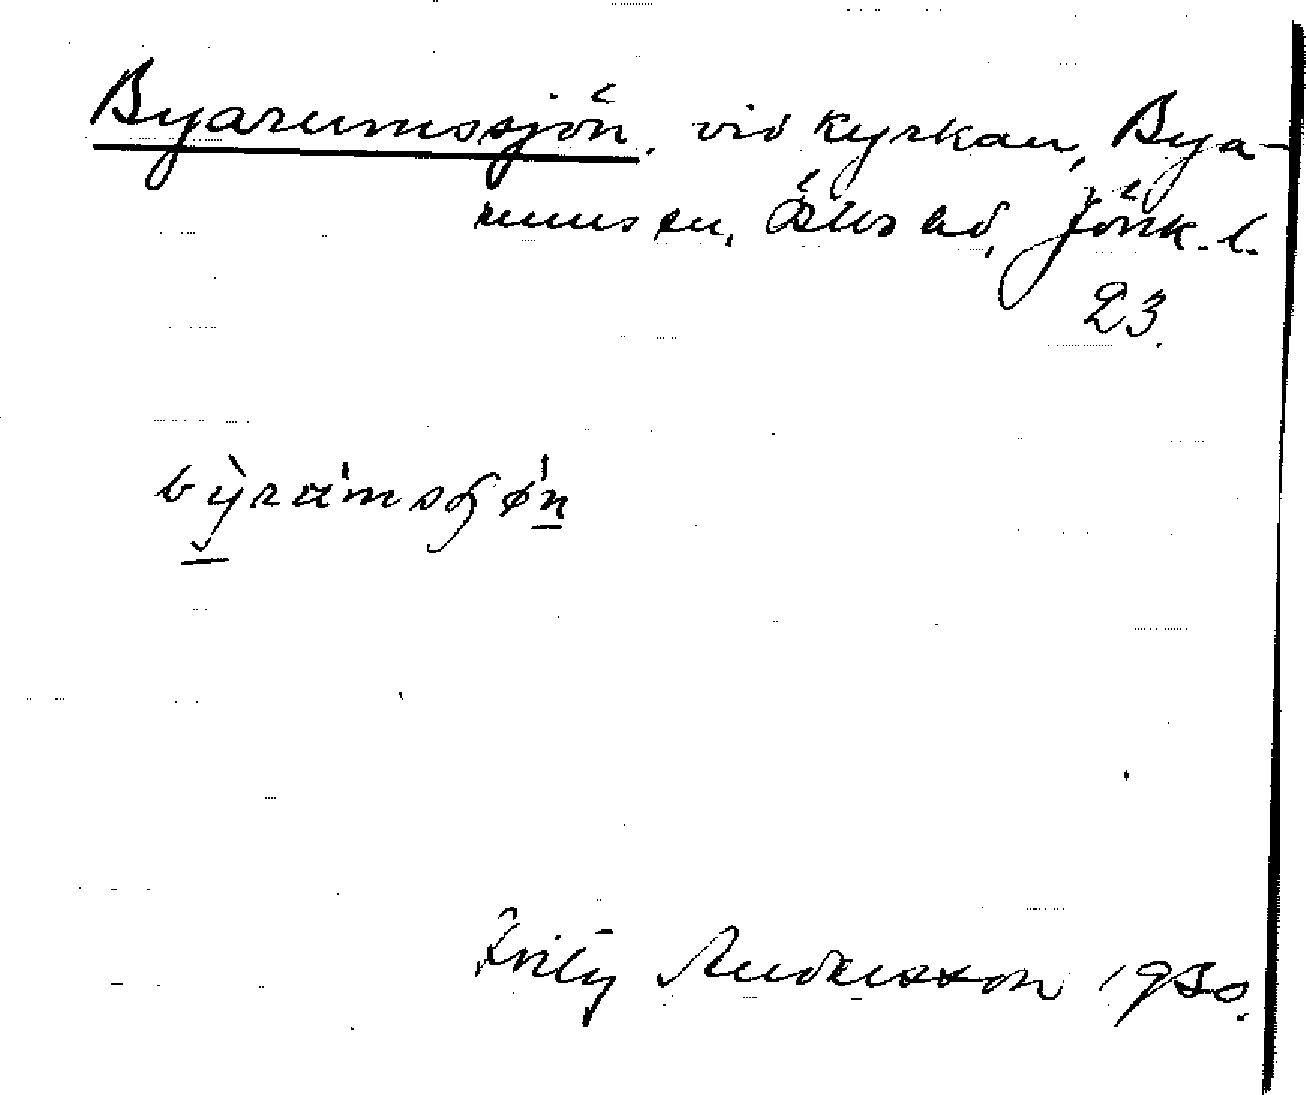 Byarumssjön, vid kyrkan, Bya-
rums sn, Östbo hd, Jönk. l.
23.
bỳ̱rámsʃǿṉ
Fritz Andersson 1930.